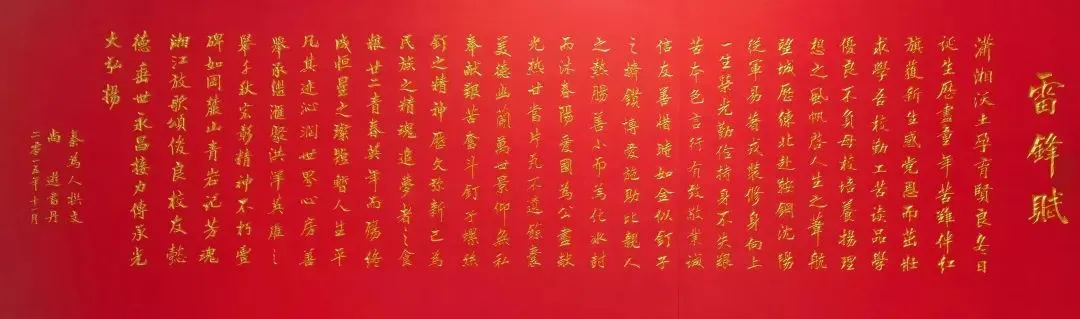 雷鋒賦
潇湘沃土孕育賢良冬日
诞生歷書童年苦難伴红
旗獲新生感党恩而茁壯
求學名校勤工苦读品學
優良不負母校培養揚理
想之風帆啓人生之華航
望城歷練北赴鞍鋼沈陽
從軍易著戎裝修身向上
一生榮光勤俭持身不失艱
苦本色言行有致敬業诚
信友善惜時如金似釘子
之擠鑽博愛施助比親人
之熱腸善小而為化冰封
而沐春陽愛國為公盡献
光熱甘當片瓦不遺餘囊
美德幽蘭萬世景仰無私
奉献艱苦奮斗釘子螺絲
釘之精神歷久弥新已為
民族之精魂追夢者之食
粮廿二青春英年而殇终
成恒星之璨 暫人生平
凡其迹沁润世界心房善
舉承 滙聚洪洋其 之
舉千秋宏彰精神不朽豐
碑如同麓山青岩记芳魂
湘江放歌頌俊良校友懿
德垂世永昌接力傳承光
大弘揚
秦為人撰文
尚遊書丹
二零一五年十一月